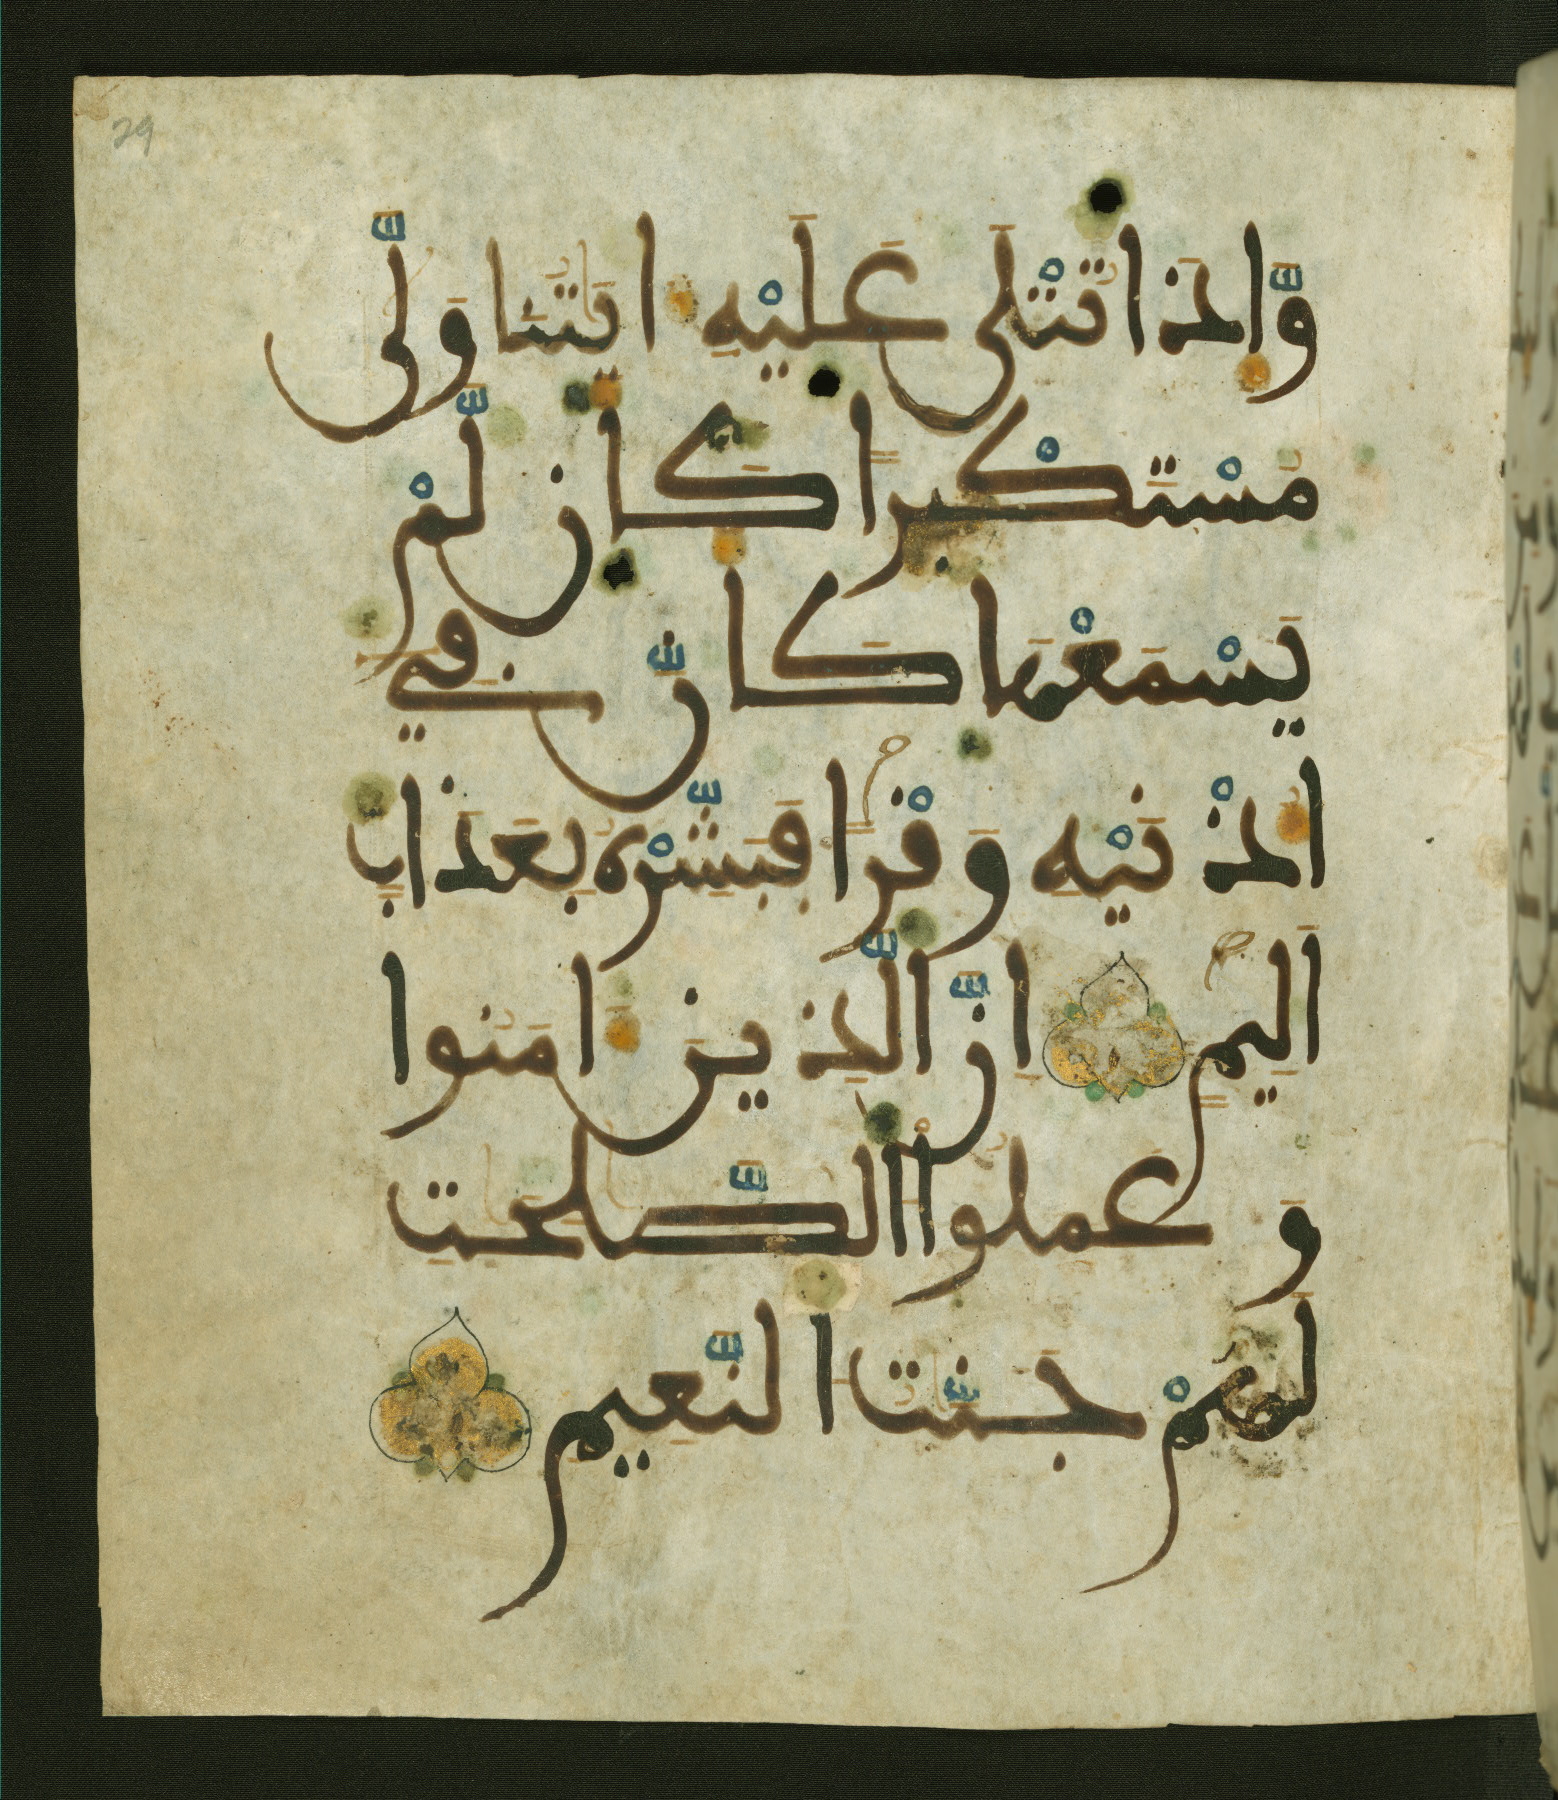 29
وَّاِذَا تُتْلَى عَلَيْهِ ءَايَٰتُنَا وَلَّى
مُسْتَكْبِرًا كَأَن لَّمْ
يَسْمَعْهَا كَأَنَّ فِي
أُذْنَيْهِ وَقْرًا فَبَشِّرْهُ بِعَذَابٍ
اَلِيمٍ اِنَّ الَّذِينَ ءَامَنُوا
وَعَمِلُوا الصَّٰلِحَٰتِ
لَهُمْ جَنَّٰتُ النَّعِيمِ